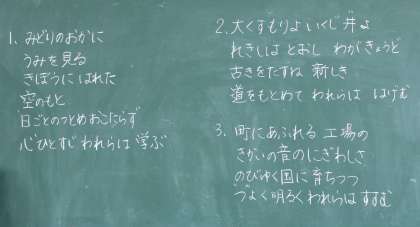 1、みどりのおかに
うみを見る
きぼうに はれた
空のもと
日ごとのつとめ おこたらず
心ひとすじ われらは 学ぶ
2、大くすもりよ いくじ井よ
れきしは とおし わがきょうど
古きをたずね 新しき
道をもとめて われらは はげむ
3、町にあふれる 工場の
きかいの音の にぎわしさ
のびゆく国に 育ちつつ
つよく 明るく われらは すすむ